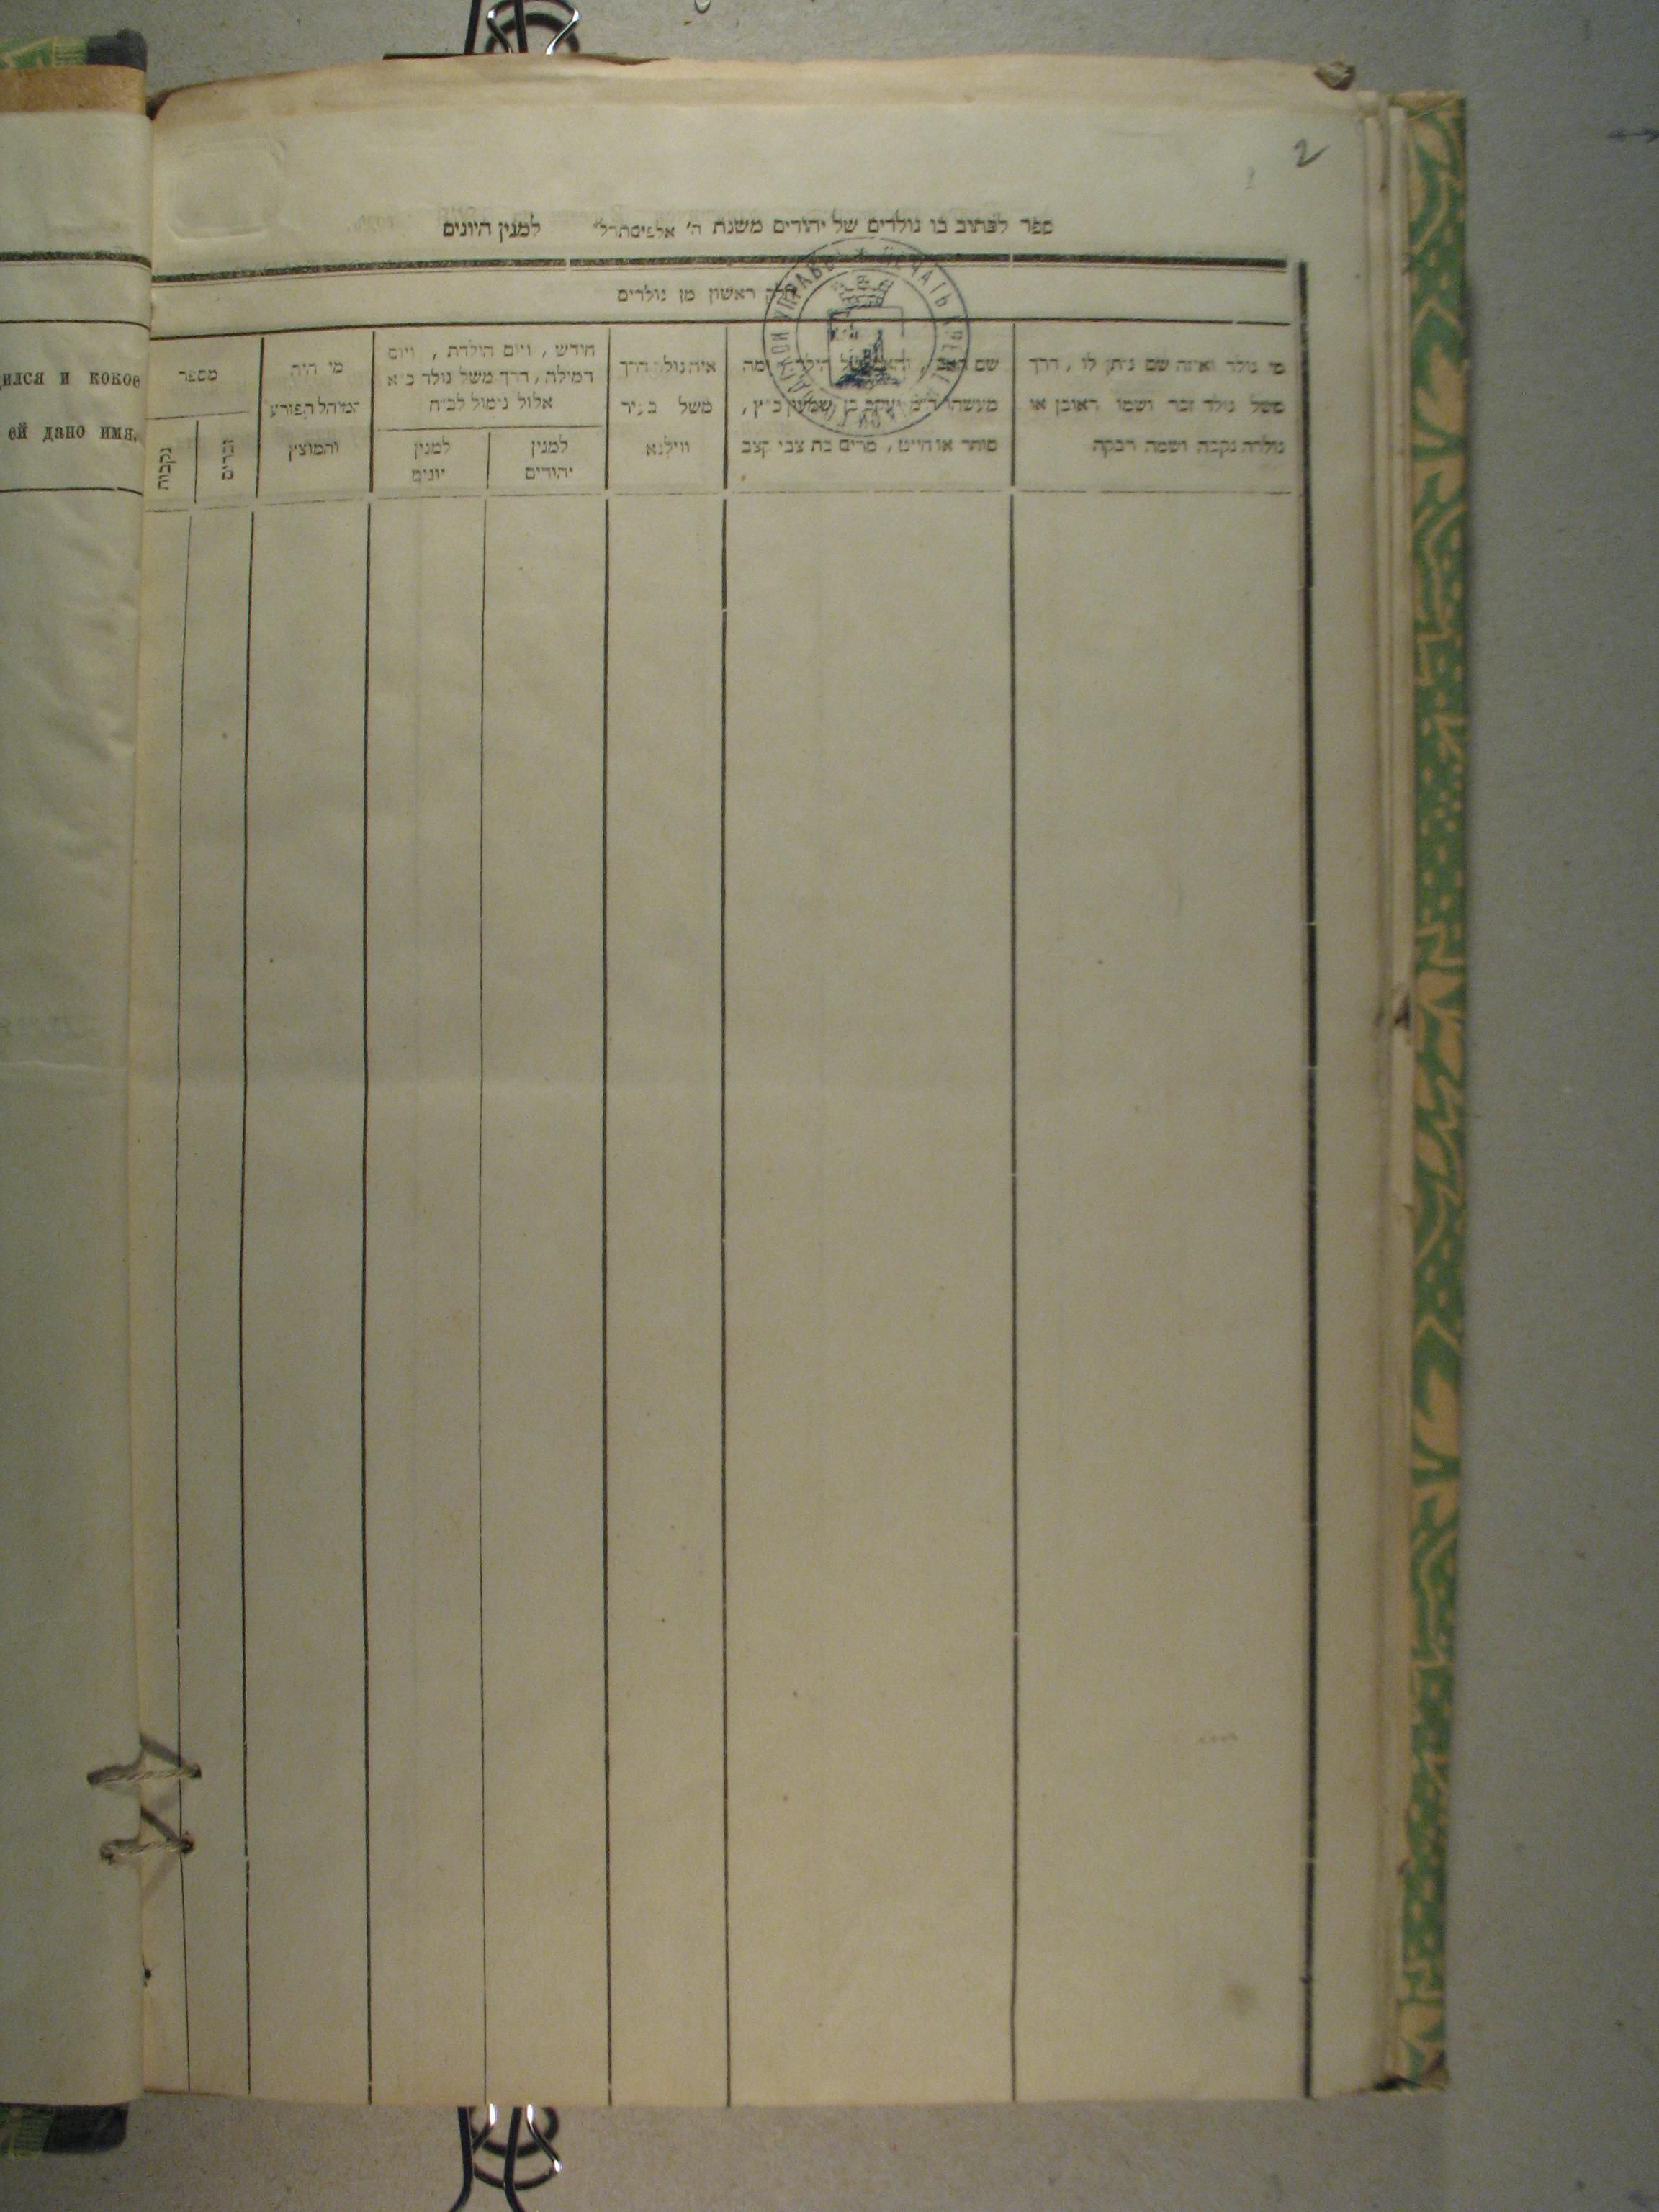 2
ספר לכתוב בו נולדים של יהודים משנת ה' למנין היונים
חלק ראשון מן נולדים
מי נולד ואיזה שם ניתן לו, דרך
משל נולד זכר ושמו ראובן או
נולדה נקבה ושמה רבקה
שם האב, ומה
מעשהו יעקב בן שמעון כ״ץ,
סוחר או חייט, מרים בת צבי קצב
איה נולד דרך
משל בעיר
ווילנא
חודש, ויום הולדת, ויום
המילה, דרך משל נולד כ״א
אלול נימול לכ״ח
למנין
יהודים
למנין
יונים
מי היה
המוהל הפורע
והמוצץ
מספר
זכרים
נקבות
ПЕЧАТЬ УПРАВЫ
ился и кокое
ей дано имя.